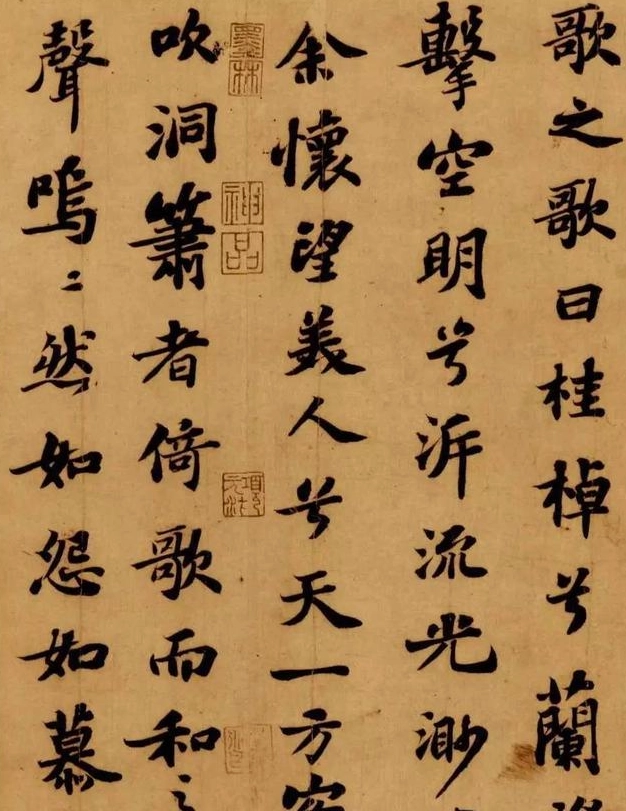 歌之歌曰桂棹兮蘭
擊空明兮泝流光渺
余懷望美人兮天一方客
墨林
神品
吹洞簫者倚歌而和之
聲嗚〻然如怨如慕